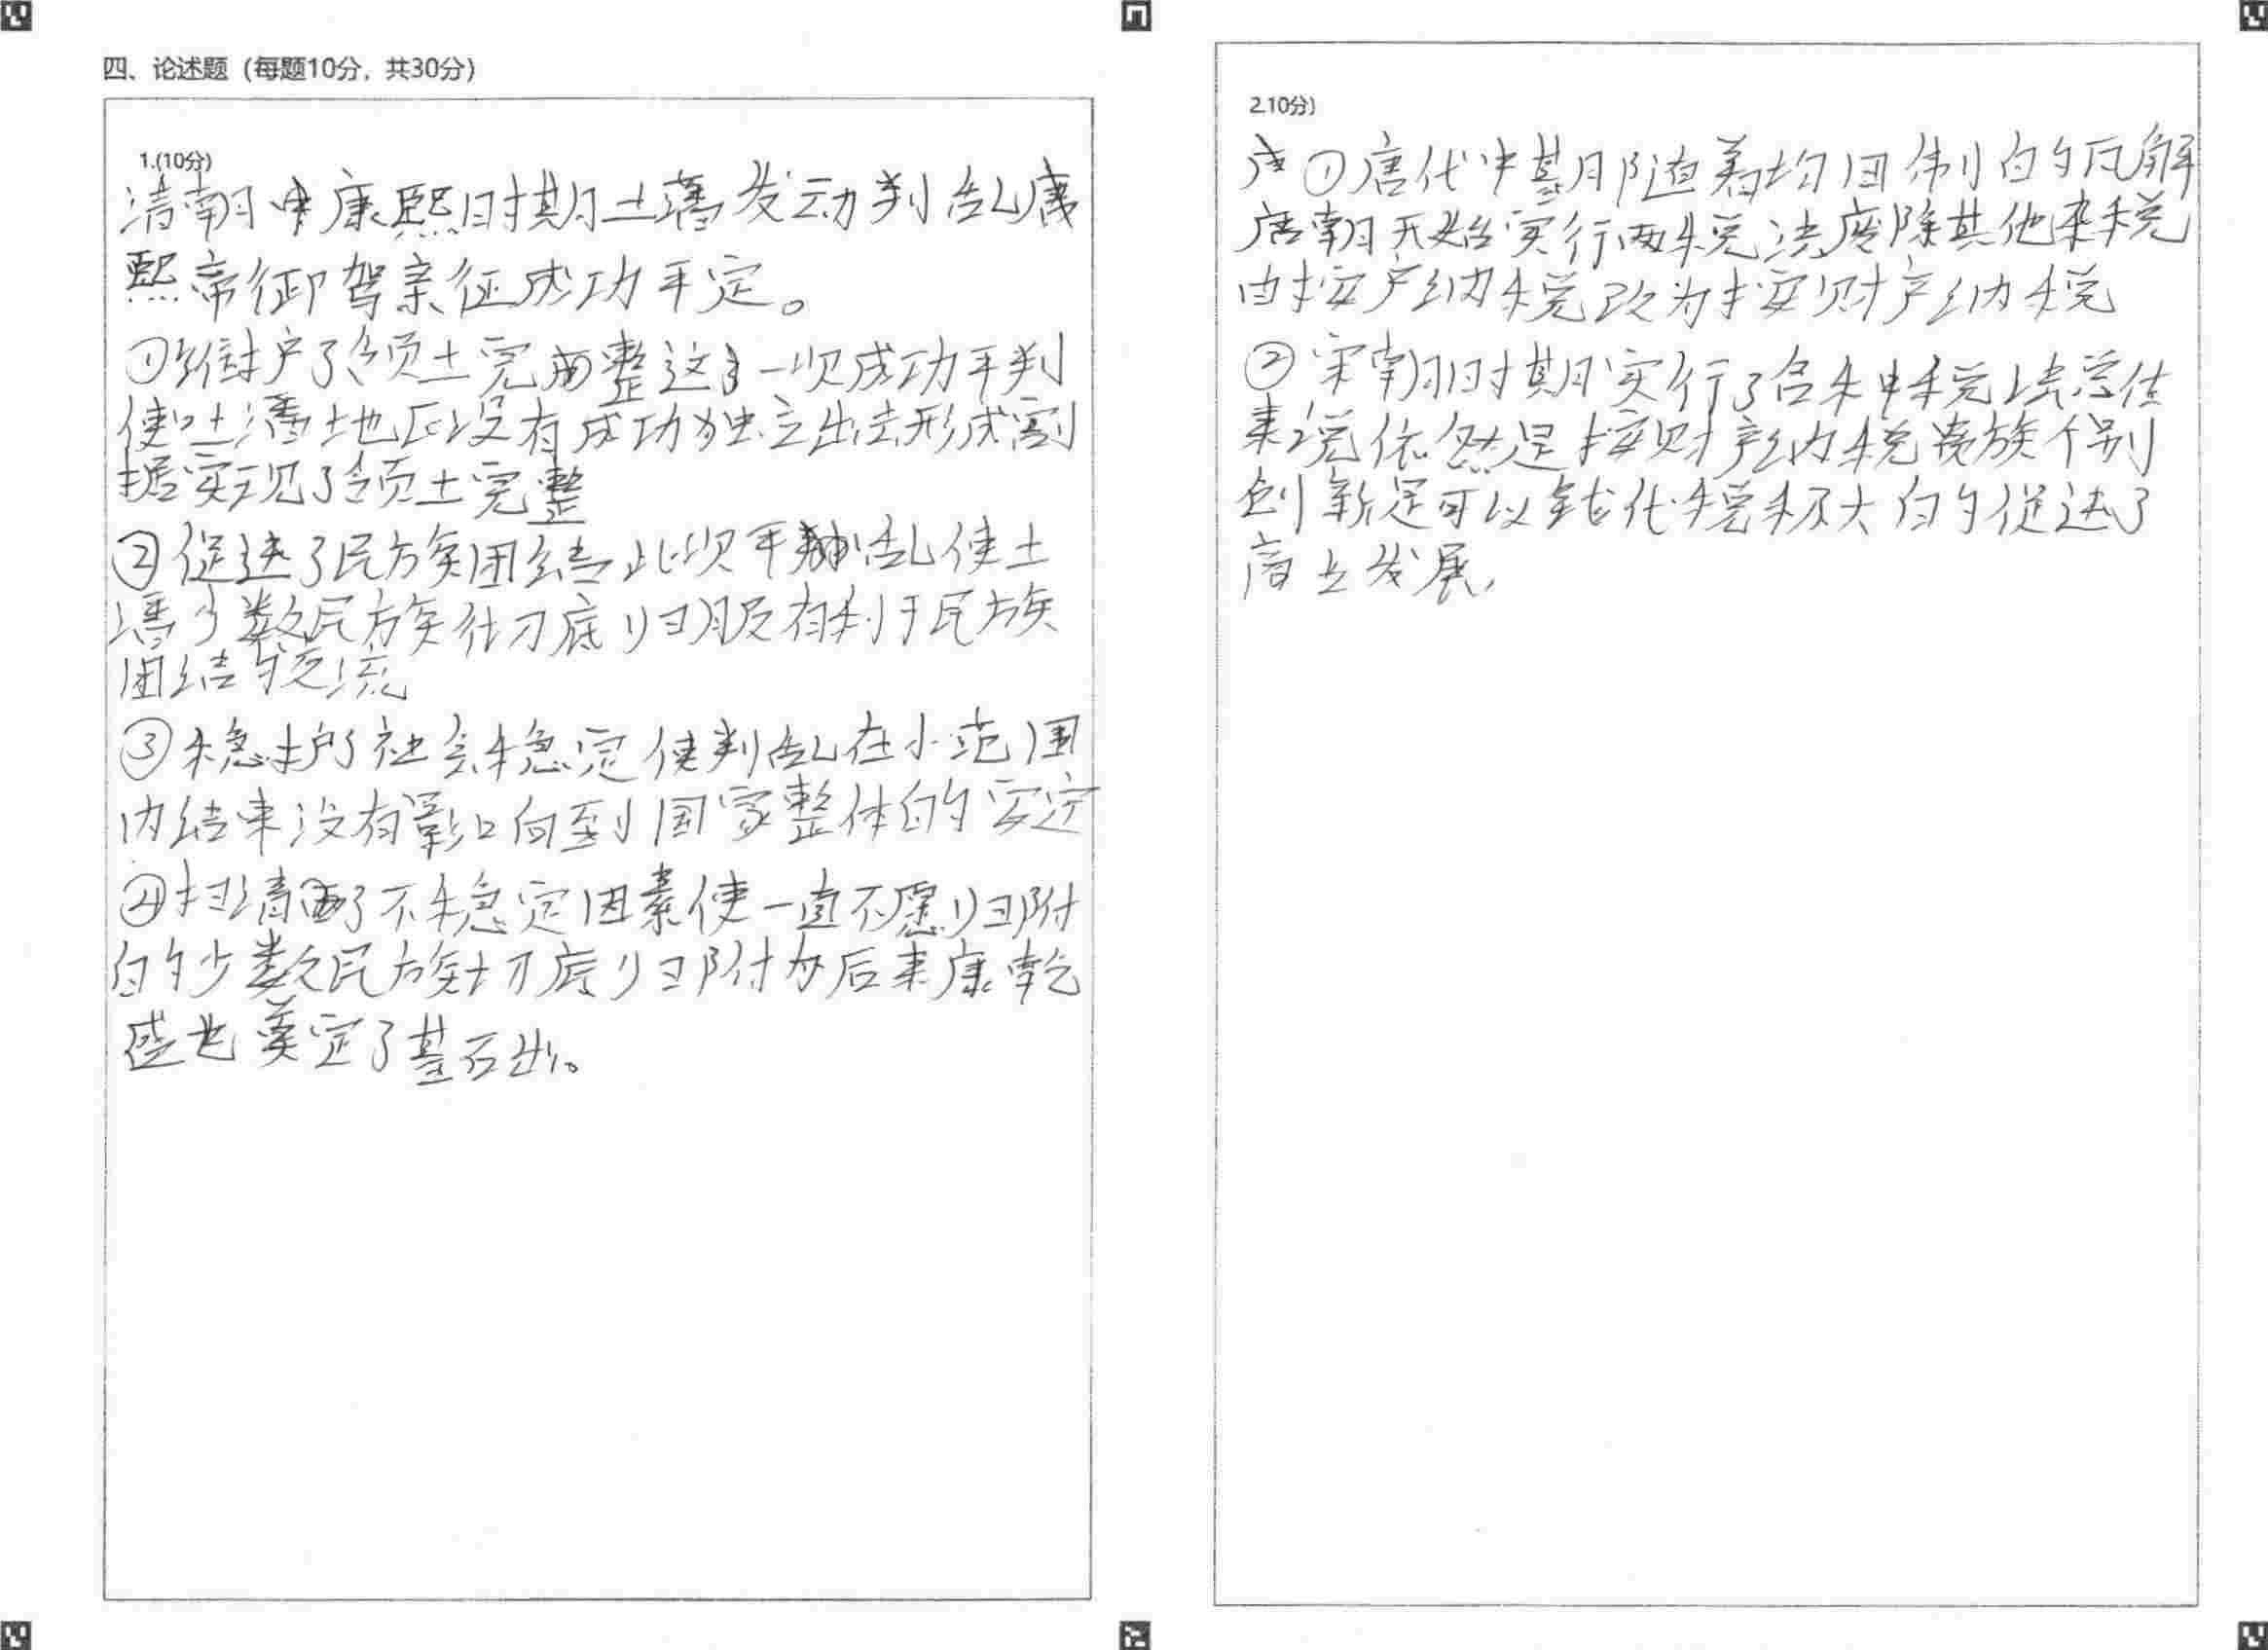 四、论述题（每题10分，共30分）
1.(10分)
清朝康熙时期土藩发动判乱康
熙帝御驾亲征成功平定。
①维护了领土完整这一次成功平判
使吐潘地区没有成功独立出去形成割
据实现了领土完整
②促进了民族团结此次平乱使土
潘少数民族彻底归服有利于民族
团结与交流
③稳护了社会稳定使判乱在小范围
内结束没有影响到国家整体的安定
④扫清了不稳定因素使一直不愿归附
的少数民族彻底归附为后来康乾
盛世奠定了基础。
2.10分)
①唐代中基月随着均田制的瓦解
唐朝开始实行两税法废除其他杂税
由按产纳税改为按财产纳税
②宋朝时期实行了税法总体
来说依然是按财产纳税个别
创新是可以钱代税极大的促进了
商业发展,